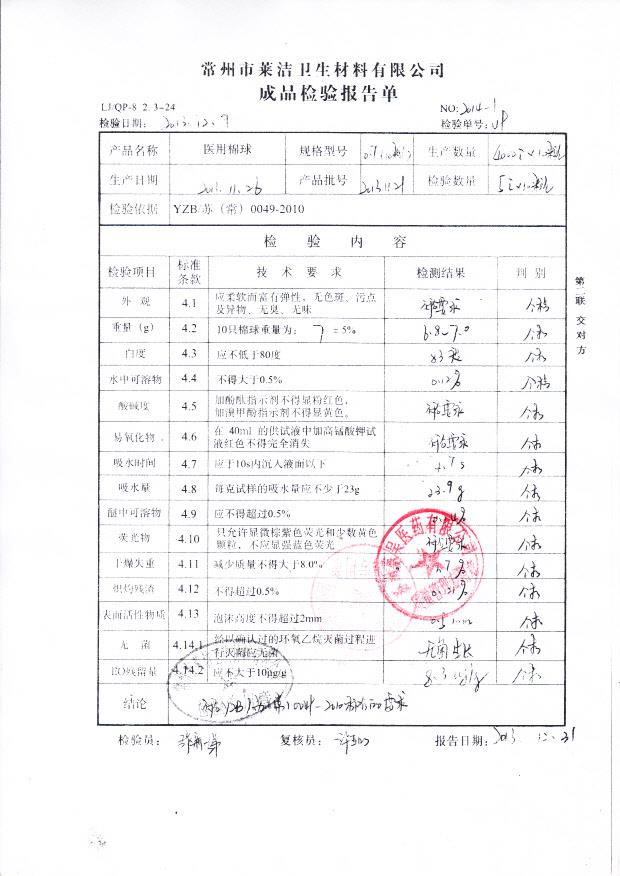 常州市莱洁卫生材料有限公司
成品检验报告单
LJ/QP-8 2.3-24 NO: 2014-1
检验日期: 2013.12.7 检验单号:
产品名称 医用棉球 规格型号 生产数量
生产日期 2013.11.26 产品批号 检验数量
检验依据 YZB/苏(常)0049-2010
检 验 内 容
检验项目 标准条款 技 术 要 求 检测结果 判 别
外 观 4.1 应柔软而富有弹性,无色斑、污点
及异物、无臭、无味 符合要求 合格
重量(g) 4.2 10只棉球重量为: 7 ±5% 6.8~7.0 合格
白度 4.3 应不低于80度 83度 合格
水中可溶物 4.4 不得大于0.5% 0.12% 合格
酸碱度 4.5 加酚酞指示剂不得显粉红色,
加溴甲酚指示剂不得显黄色。 符合要求 合格
易氧化物 4.6 在 40ml 的供试液中加高锰酸钾试
液红色不得完全消失 符合要求 合格
吸水时间 4.7 应于10s内沉入液面以下 合格
吸水量 4.8 每克试样的吸水量应不少于23g 23.9g 合格
醚中可溶物 4.9 应不得超过0.5% 合格
荧光物 4.10 只允许显微棕紫色荧光和少数黄色
颗粒,不应显强蓝色荧光 符合要求 合格
干燥失重 4.11 减少质量不得大于8.0% 合格
炽灼残渣 4.12 不得超过0.5% 合格
表面活性物质 4.13 泡沫高度不得超过2mm 合格
无 菌 4.14.1 经以确认过的环氧乙烷灭菌过程进
行灭菌应无菌 无菌生长 合格
EO残留量 4.14.2 应不大于10μg/g 合格
结论 符合YZB/苏(常)0049-2010标准的要求
检验员: 复核员: 报告日期: 2013. 12. 21
第二联 交对方